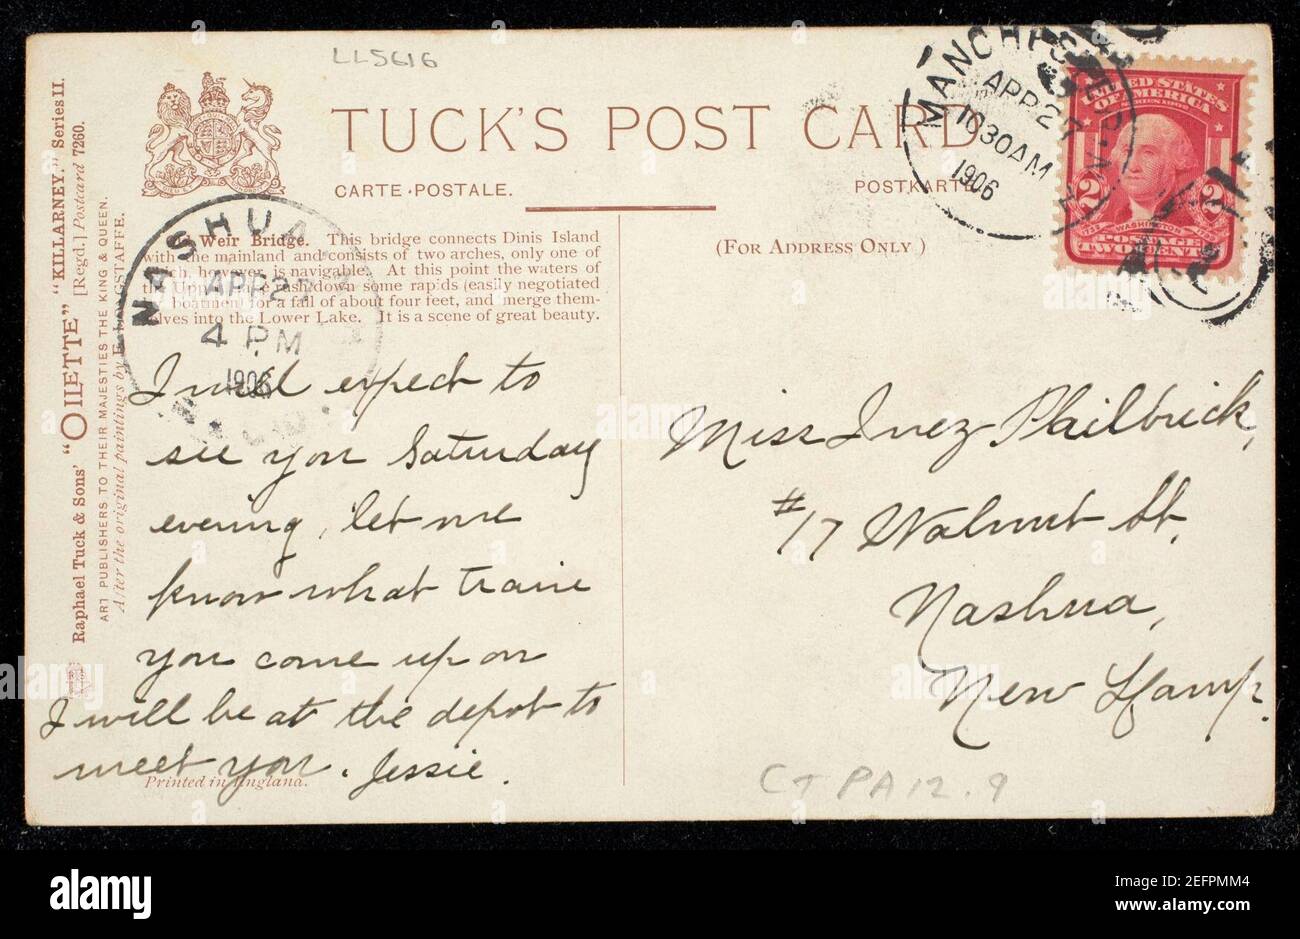 LL5616
TUCK'S POST CARD
CARTE POSTALE.
POSTKARTE
(FOR ADDRESS ONLY)
MANCHESTER
APR 27
1030AM
1906
N.H.
UNITED STATES
OF AMERICA
2 2
WASHINGTON
POSTAGE
TWO CENTS
Raphael Tuck & Sons' "OILETTE" "KILLARNEY." Series II.
[Regd.] Postcard 7260.
ART PUBLISHERS TO THEIR MAJESTIES THE KING & QUEEN.
After the original paintings by F. LONGSTAFFE.
NASHUA
APR 27
4 PM
1906
Weir Bridge. This bridge connects Dinis Island
with the mainland and consists of two arches, only one of
which, however, is navigable. At this point the waters of
the Upper Lake rush down some rapids (easily negotiated
boatmen) for a fall of about four feet, and merge them-
selves into the Lower Lake. It is a scene of great beauty.
I will expect to
see you Saturday
evening, let me
know what train
you come up on
I will be at the depot to
meet you. Jessie.
Printed in England.
Miss Inez Philbrick,
#17 Walnut St.
Nashua,
New Hamp.
CT PA 12.9
alamy
Image ID: 2EFPMM4
www.alamy.com